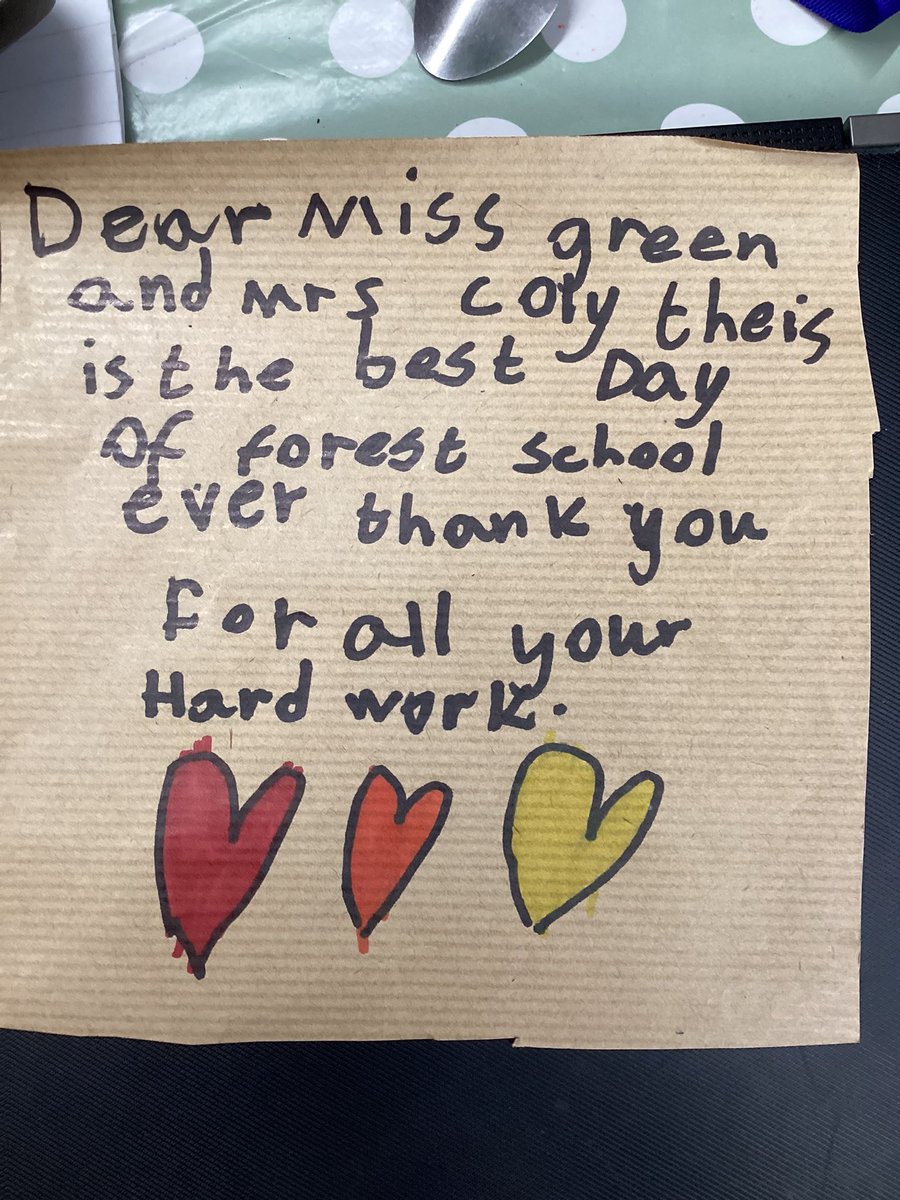 Dear Miss green
and mrs coly theis
is the best Day
of forest school
ever thank you
for all your
Hard work.